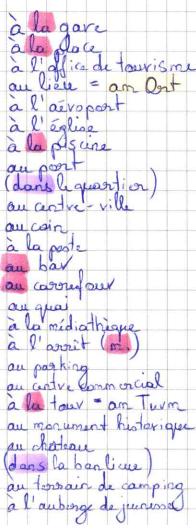 à la gare
à la place
à l'office de tourisme
au lieu = am Ort
à l'aéroport
à l'église
à la piscine
au port
(dans le quartier)
au centre-ville
au coin
à la poste
au bar
au carrefour
au quai
à la médiathèque
à l'arrêt (m.)
au parking
au centre commercial
à la tour = am Turm
au monument historique
au château
(dans la banlieue)
au terrain de camping
à l'auberge de jeunesse